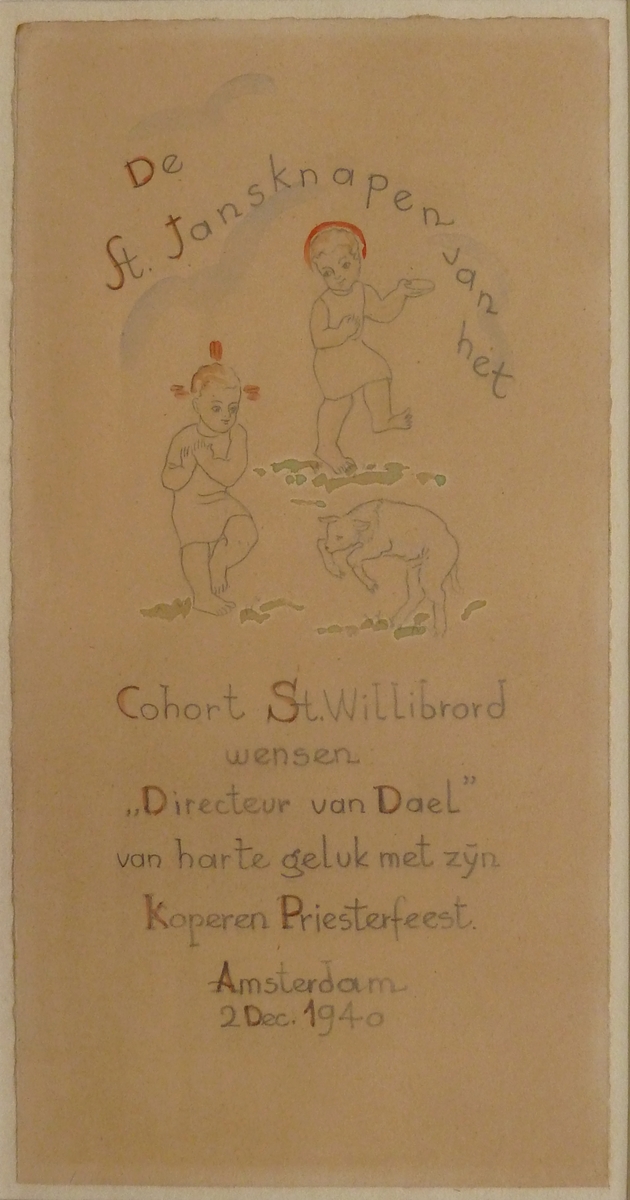 De
St. Jansknapen van het
Cohort St. Willibrord
wensen
„Directeur van Dael”
van harte geluk met zÿn
Koperen Priesterfeest.
Amsterdam
2 Dec. 1940